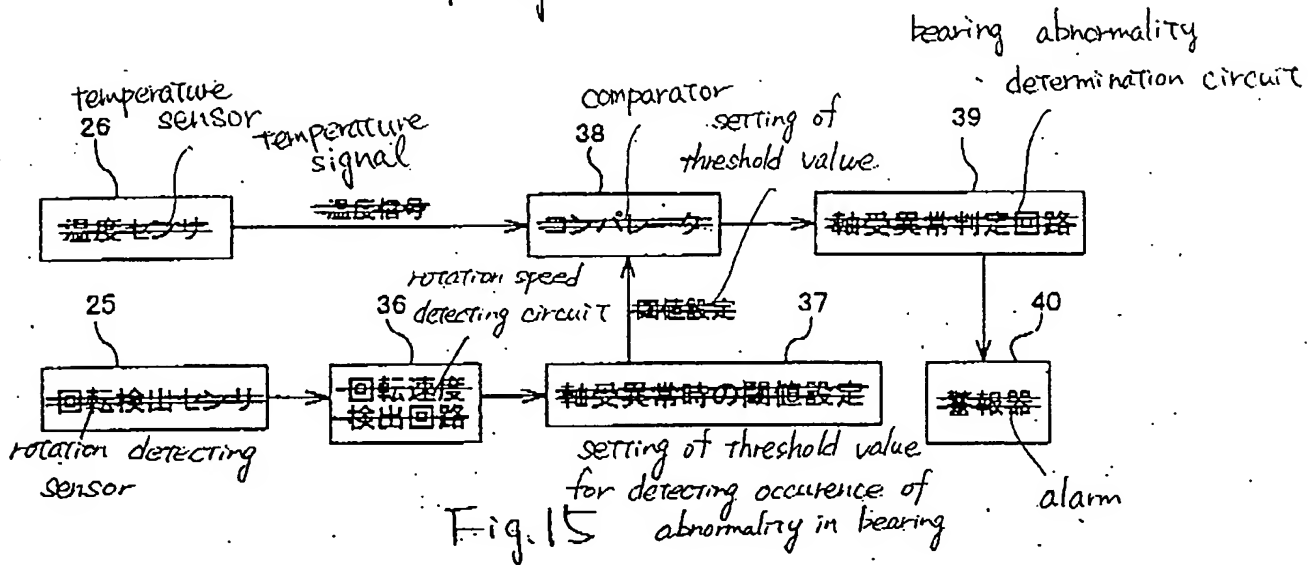 bearing abnormality
determination circuit
temperature
sensor
26
temperature
signal
comparator
38
setting of
threshold value
39
温度センサ
温度信号
コンパレータ
軸受異常判定回路
rotation speed
detecting circuit
25
36
閾値設定
37
40
回転検出センサ
回転速度
検出回路
軸受異常時の閾値設定
警報器
rotation detecting
sensor
setting of threshold value
for detecting occurence of
abnormality in bearing
alarm
Fig.15